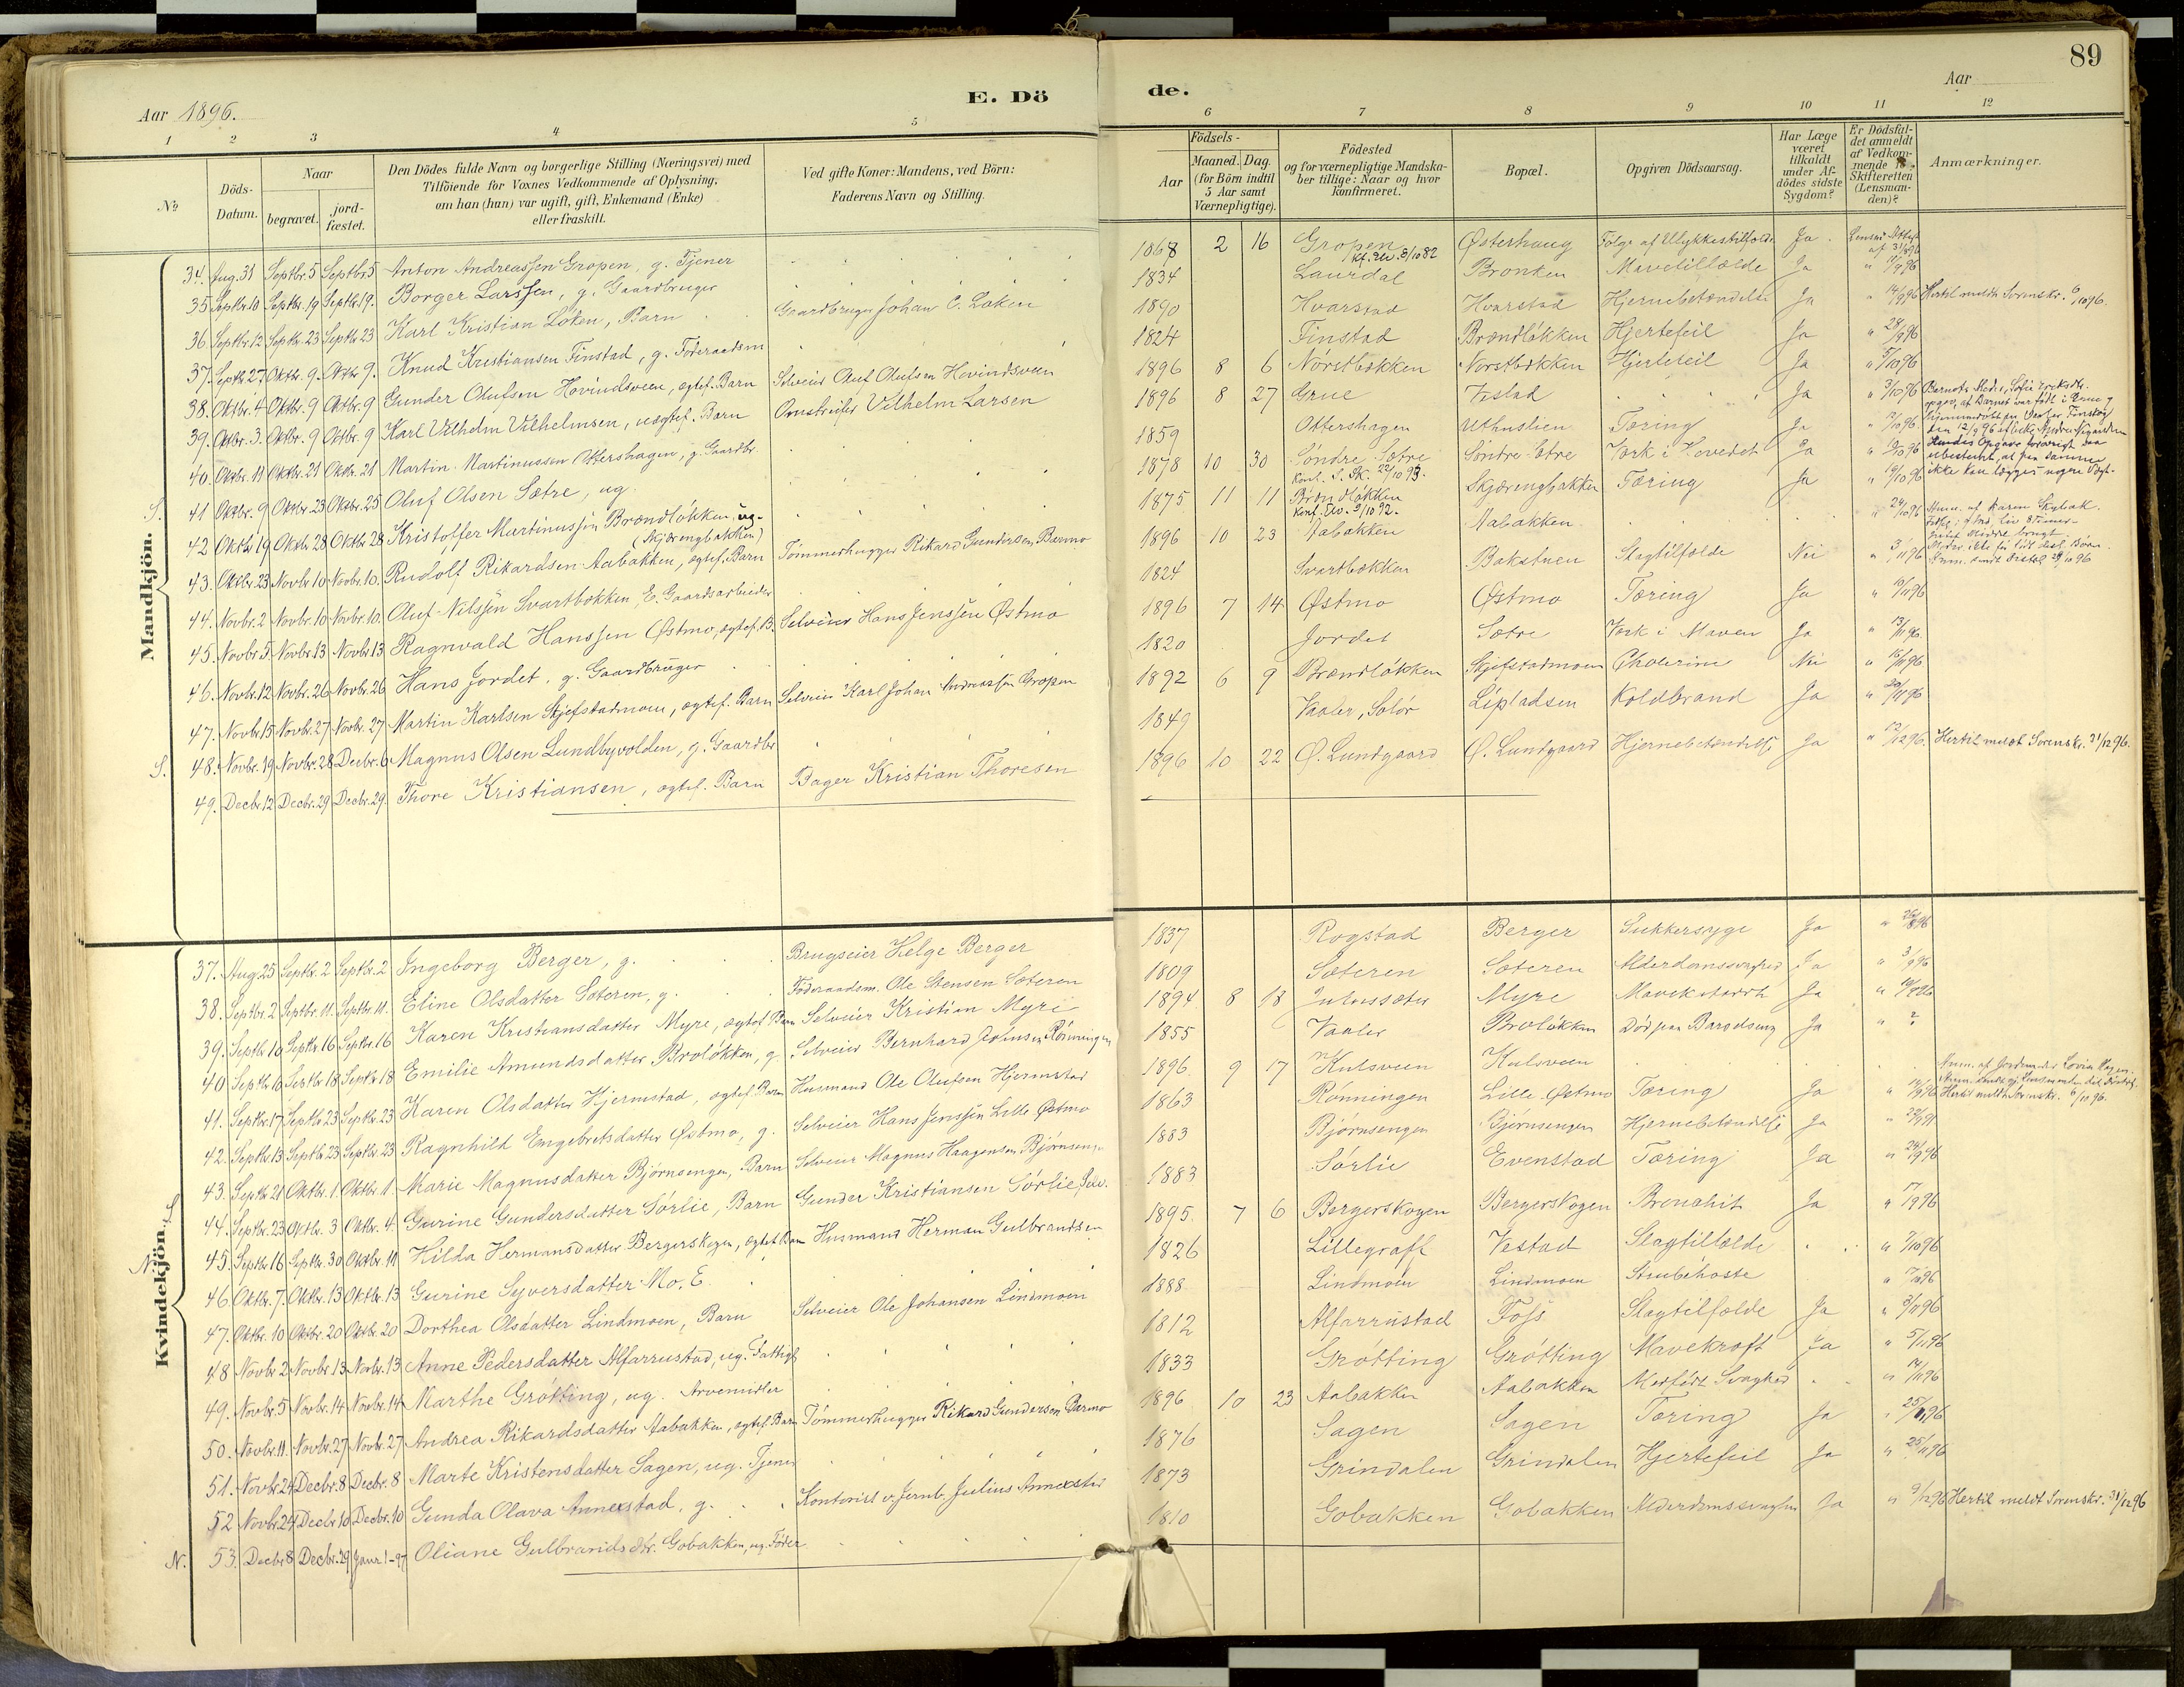 89
Aar 1896.
E. Dö
de.
Aar
1 2 3 4 5 6 7 8 9 10 11 12
№
Döds-Datum.
Naar
begravet.
jord-fæstet.
Den Dödes fulde Navn og borgerlige Stilling (Næringsvei) med
Tilföiende for Voxnes Vedkommende af Oplysning,
om han (hun) var ugift, gift, Enkemand (Enke)
eller fraskilt.
Ved gifte Koner: Mandens, ved Börn:
Faderens Navn og Stilling.
Födsels-
Aar
Maaned. Dag.
(for Börn indtil
5 Aar samt
Værnepligtige).
Födested
og for værnepligtige Mandska-
ber tillige: Naar og hvor
konfirmeret.
Bopæl.
Opgiven Dödsaarsag.
Har Læge
været
tilkaldt
under Af-
dödes sidste
Sygdom?
Er Dödsfal-
det anmeldt
af Vedkom-
mende til
Skifteretten
(Lensman-
den)?
Anmærkninger.
Mandkjön.
34. Aug. 31 Septbr. 5 Septbr. 5 Anton Andreassen Gropen, g. Tjener 1868 2 16 Gropen Kf. Elv. 8/10 82 Østerhaug Følge af Ulykkestilfælde Ja. Lensm. Attest af 31/8 96
35 Septbr. 10 Septbr. 19 Septbr. 19. Borger Larssen, g. Gaardbruger 1834 Laurdal Bronken Mavetilfælde Ja
36. Septbr. 12 Septbr. 23 Septbr 23 Karl Kristian Løken, Barn Gaardbruger Johan C. Løken 1890 Hvarstad Hvarstad Hjernebetændelse Ja " 14/9 96 Hertil meldt Sorenskr. 6/10 96.
37. Septbr 27 Oktbr. 9. Oktbr 9. Knud Kristiansen Finstad, g. Føderaadsm 1824 Finstad Brændløkken Hjertefeil Ja " 28/9 96
38. Oktbr. 4 Oktbr. 9 Oktbr. 9 Gunder Olufsen Hovindsveen, ægtef. Barn Selveier Oluf Olufsen Hovindsveen 1896 8 6 Nørstbækken Nørstbækken Hjertefeil Ja " 5/10 96
39. Oktbr. 3. Oktbr. 9 Oktbr. 9 Karl Vilhelm Vilhelmsen, uægtef. Barn Omstreifer Vilhelm Larsen 1896 8 27 Grue Ja " 3/10 96
40. Oktbr. 11 Oktbr. 21 Oktbr. 21 Martin Martinussen Ottershagen, g. Gaardbr. 1859 Ottershagen Uthuslien Tæring Ja
S. 41 Oktbr. 9 Oktbr. 23 Oktbr. 25 Oluf Olsen Sætre, ug. 1878 10 30 Søndre Sætre Konf. S. Sk. 22/10 93. Søndre Sætre Værk i Hovedet Ja
42 Oktbr 19 Oktbr 28 Oktbr 28 Kristoffer Martinussen Brændløkken, ug. (Skjærengbakken) 1875 11 11 Brændløkken Konf. Elv. 9/10 92. Skjærengbakken Tæring Ja " 19/10 96
43. Oktbr. 23 Novbr. 10 Novbr. 10. Rudolf Rikardsen Aabakken, ægtef. Barn Tømmerhugger Rikard Gundersen Barmo 1896 10 23 Aabakken Aabakken " 24/10 96
44. Novbr. 2 Novbr. 10 Novbr. 10. Oluf Nilssen Svartbækken, E. Gaardsarbeider 1824 Svartbækken Bakstuen Slagtilfælde Nei " 3/11 96
45. Novbr. 5 Novbr. 13 Novbr 13 Ragnvald Hanssen Østmo, ægtef. B. Selveier Hans Jenssen Østmo 1896 7 14 Østmo Østmo Tæring Ja " 10/11 96
46. Novbr. 12 Novbr. 26 Novbr. 26 Hans Jordet, g. Gaardbruger 1820 Jordet Sætre Værk i Maven Ja " 13/11 96.
47. Novbr. 15 Novbr. 27 Novbr. 27 Martin Karlsen Skjefstadmoen, ægtef. Barn Selveier Karl Johan Andreassen Gropen 1892 6 9 Brændløkken Skjefstadmoen Cholerine Nei " 16/11 96
S. 48. Novbr. 19 Novbr. 28 Decbr. 6 Magnus Olsen Lundbyvolden, g. Gaardbr 1849 Vaaler, Solør Lipladsen Koldbrand Ja " 20/11 96
49. Decbr. 12 Decbr. 29 Decbr. 29. Thore Kristiansen, ægtef. Barn Bager Kristian Thoresen 1896 10 22 Ø. Lundgaard Ø. Lundgaard Hjernebetændelse Ja " 12/12 96. Hertil meldt Sorenskr. 31/12 96.
Kvindekjön.
37. Aug. 25 Septbr. 2 Septbr. 2 Ingeborg Berger, g. Brugseier Helge Berger 1837 Rogstad Berger Sukkersyge Ja " 26/8 96
38. Septbr. 2 Septbr. 11. Septbr. 11. Eline Olsdatter Sæteren, g. Føderaadsm. Ole Stensen Sæteren 1809 Sæteren Sæteren Alderdomssvaghed Ja " 3/9 96
39. Septbr 10 Septbr. 16 Septbr. 16 Karen Kristiansdatter Myre, ægtef. Barn Selveier Kristian Myre 1894 8 18 Julussæter Myre Mavekatarrh Ja
40 Septbr. 10 Septbr 18 Septbr 18 Emilie Amundsdatter Broløkken, g. Selveier Bernhard Johnsen Rønningen 1855 Vaaler Broløkken Død paa Barselseng Ja " ?
41. Septbr. 17 Septbr 23 Septbr. 23 Karen Olsdatter Hjermstad, ægtef. Barn Husmand Ole Olufsen Hjermstad 1896. 9 17 Kulsveen Kulsveen
42. Septbr. 13 Septbr. 23 Septbr. 23 Ragnhild Engebretsdatter Østmo, g. Selveier Hans Jenssen Lille Østmo 1863 Rønningen Lille Østmo Tæring Ja Hertil meldt Sorenskr. 6/10 96.
43. Septbr. 21 Oktbr. 1. Oktbr. 1. Marie Magnusdatter Bjørnsengen, Barn Selveier Magnus Haagensen Bjørnsengen 1883 Bjørnsengen Bjørnsengen Hjernebetændelse Ja
S. 44. Septbr. 23 Oktbr. 3 Oktbr. 4. Gurine Gundersdatter Sørlie, Barn Gunder Kristiansen Sørlie, Selv. 1883 Sørlie Evenstad Tæring Ja " 24/9 96
N. 45. Septbr 16 Septbr. 30 Oktbr. 11 Hilda Hermansdatter Bergerskogen, ægtef. Barn Husmand Herman Gulbrandsen 1895. 7 6 Bergerskogen Bergerskogen Bronchit Ja " 17/9 96
46. Oktbr. 7. Oktbr. 13 Oktbr. 13 Gurine Syversdatter Mo. E. 1826 Lillegraff Vestad Slagtilfælde " 7/10 96
47. Oktbr. 10 Oktbr. 20 Oktbr. 20 Dorthea Olsdatter Lindmoen, Barn Selveier Ole Johansen Lindmoen 1888 Lindmoen Lindmoen Strubehoste
48 Novbr. 2 Novbr 13 Novbr. 13 Anne Pedersdatter Alfarrustad, ug. Fattigl 1812 Alfarrustad Foss Slagtilfælde Ja " 3/11 96
49. Novbr. 5 Novbr. 14 Novbr. 14 Marthe Grøtting, ug. Arvemidler 1833 Grøtting Grøtting Mavekræft Ja " 5/11 96
50. Novbr. 11. Novbr. 27 Novbr. 27 Andrea Rikardsdatter Aabakken, ægtef. Barn Tømmerhugger Rikard Gundersen Barmo 1896 10 23 Aabakken Aabakken Medfødt Svaghed
51. Novbr. 24 Decbr. 8 Decbr. 8 Marte Kristensdatter Sagen, ug. Tjener 1876 Sagen Sagen Tæring Ja " 25/11 96
52 Novbr. 24 Decbr 10 Decbr. 10 Gunda Olava Annexstad, g. Kontorist v. Jernb. Julius Annexstad 1873 Grindalen Grindalen Hjertefeil Ja " 25/11 96
N. 53. Decbr 8 Decbr. 29 Janr. 1-97 Oliane Gulbrandsdtr. Gobakken, ug. Føder 1810 Gobakken Gobakken Alderdomssvaghed Ja " 9/12 96 Hertil meldt Sorenskr. 31/12 96